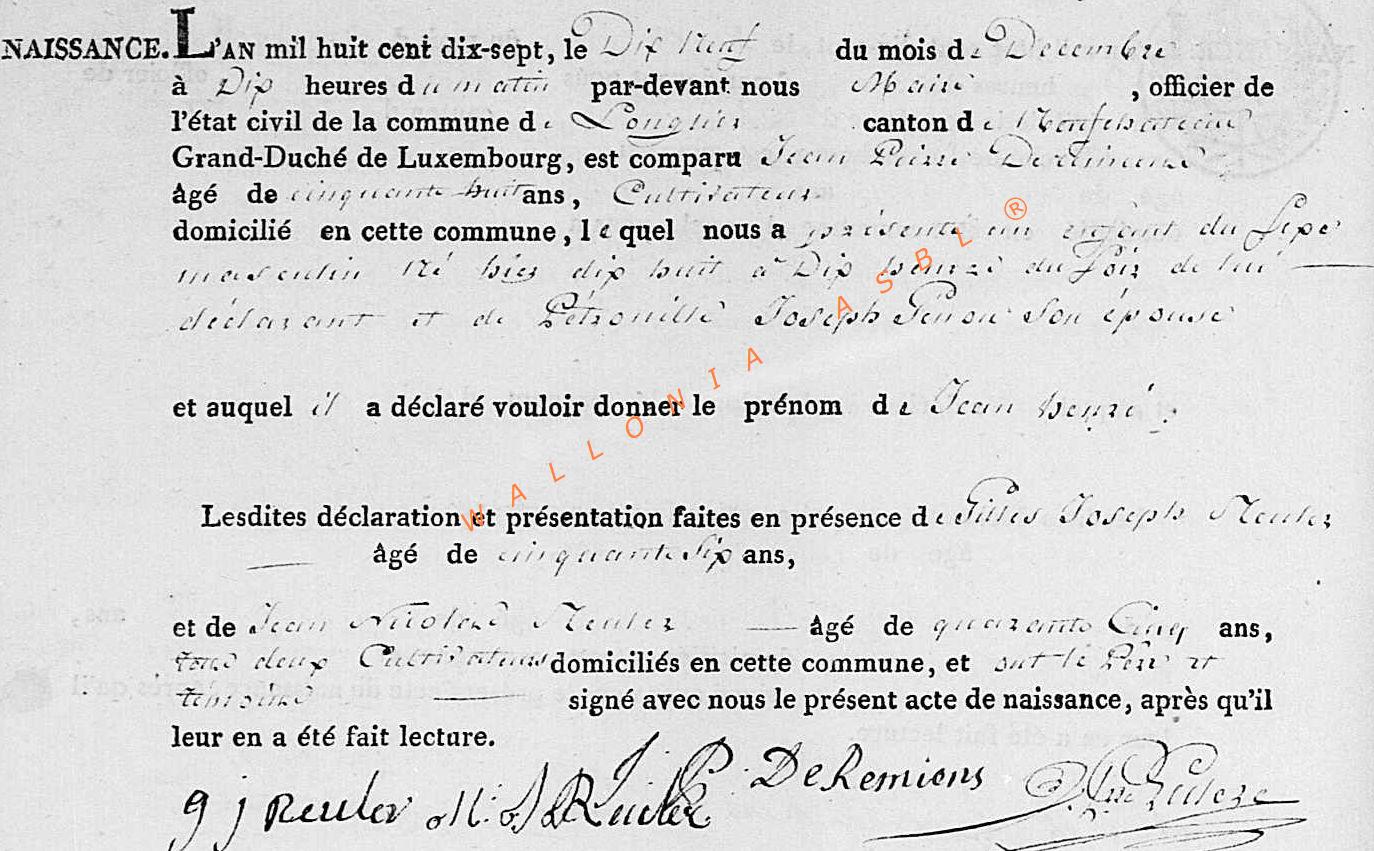 NAISSANCE. L'AN mil huit cent dix-sept, le Dix Neuf du mois de Decembre
à Dix heures du matin par-devant nous Maire , officier de
l'état civil de la commune de Longlier canton de Neufchateau
Grand-Duché de Luxembourg, est comparu Jean Pierre
âgé de cinquante huit ans, Cultivateur
domicilié en cette commune, le quel nous a présenté un enfant du Sexe
masculin Né hier dix huit à Dix heure du Soir de lui
déclarant et de Pétronille Joseph son épouse
et auquel il a déclaré vouloir donner le prénom de Jean henri
Lesdites déclaration et présentation faites en présence de Gilles Joseph Reuler
âgé de cinquante Six ans,
et de Jean Nicolas Reuler âgé de quarante Cinq ans,
tous deux Cultivateurs domiciliés en cette commune, et ont le Père et
témoins signé avec nous le présent acte de naissance, après qu'il
leur en a été fait lecture.
g j Reuler J P DeRemiens
WALLONIA ASBL ®